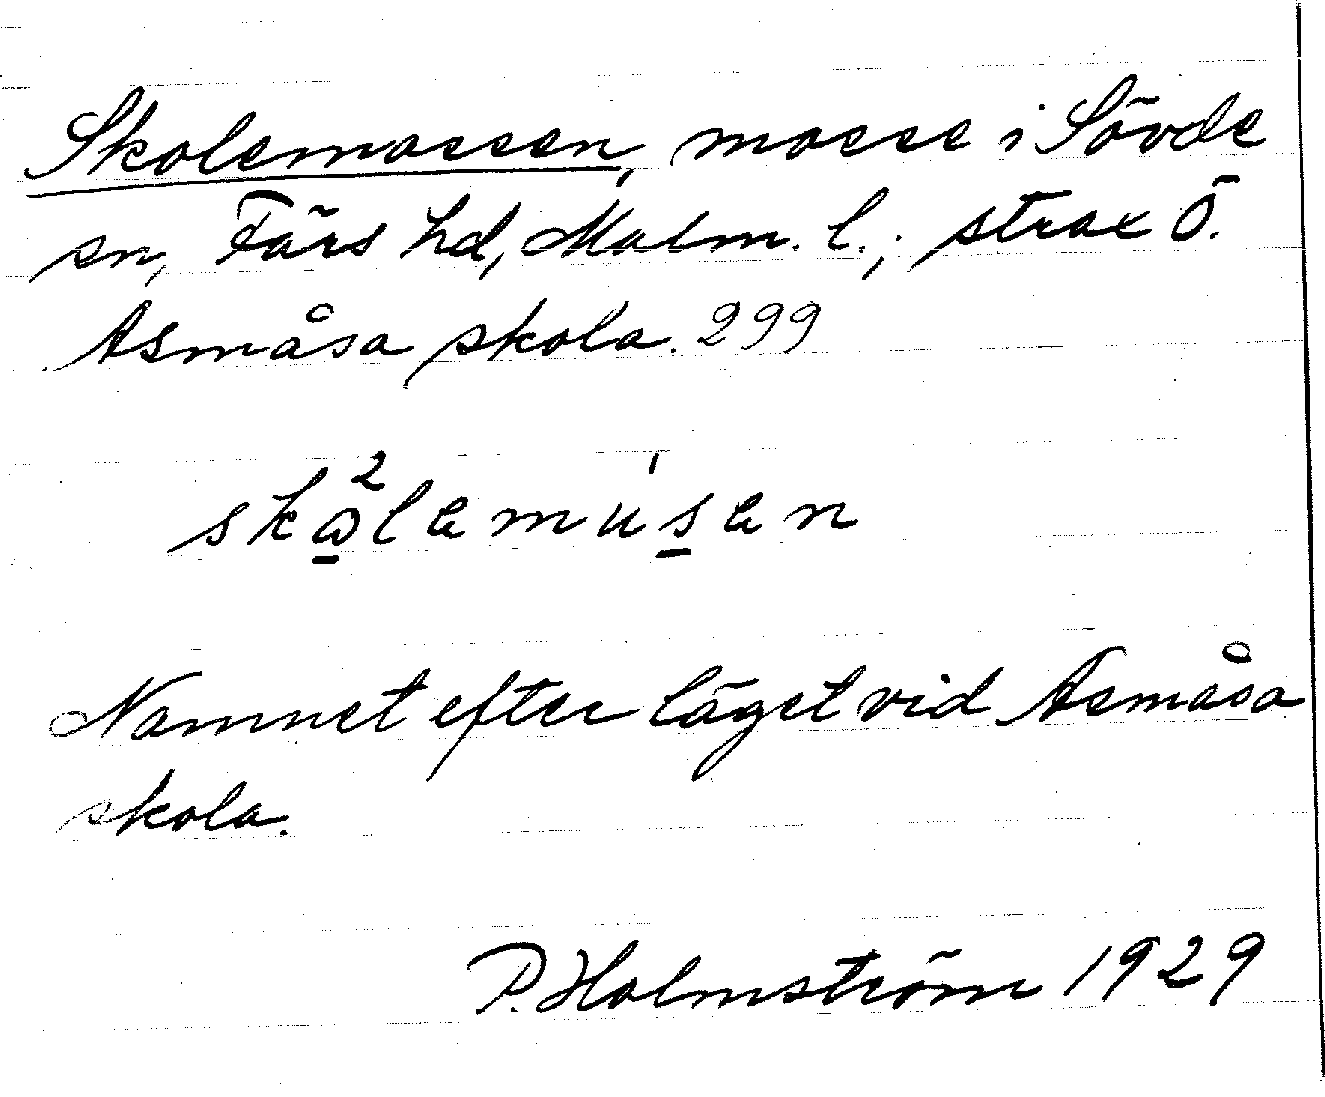 Skolemossen, mosse i Sövde
sn, Färs hd, Malm. l.; strax Ö.
Asmåsa skola. 299
Namnet efter läget vid Asmåsa
skola.
P. Holmström 1929